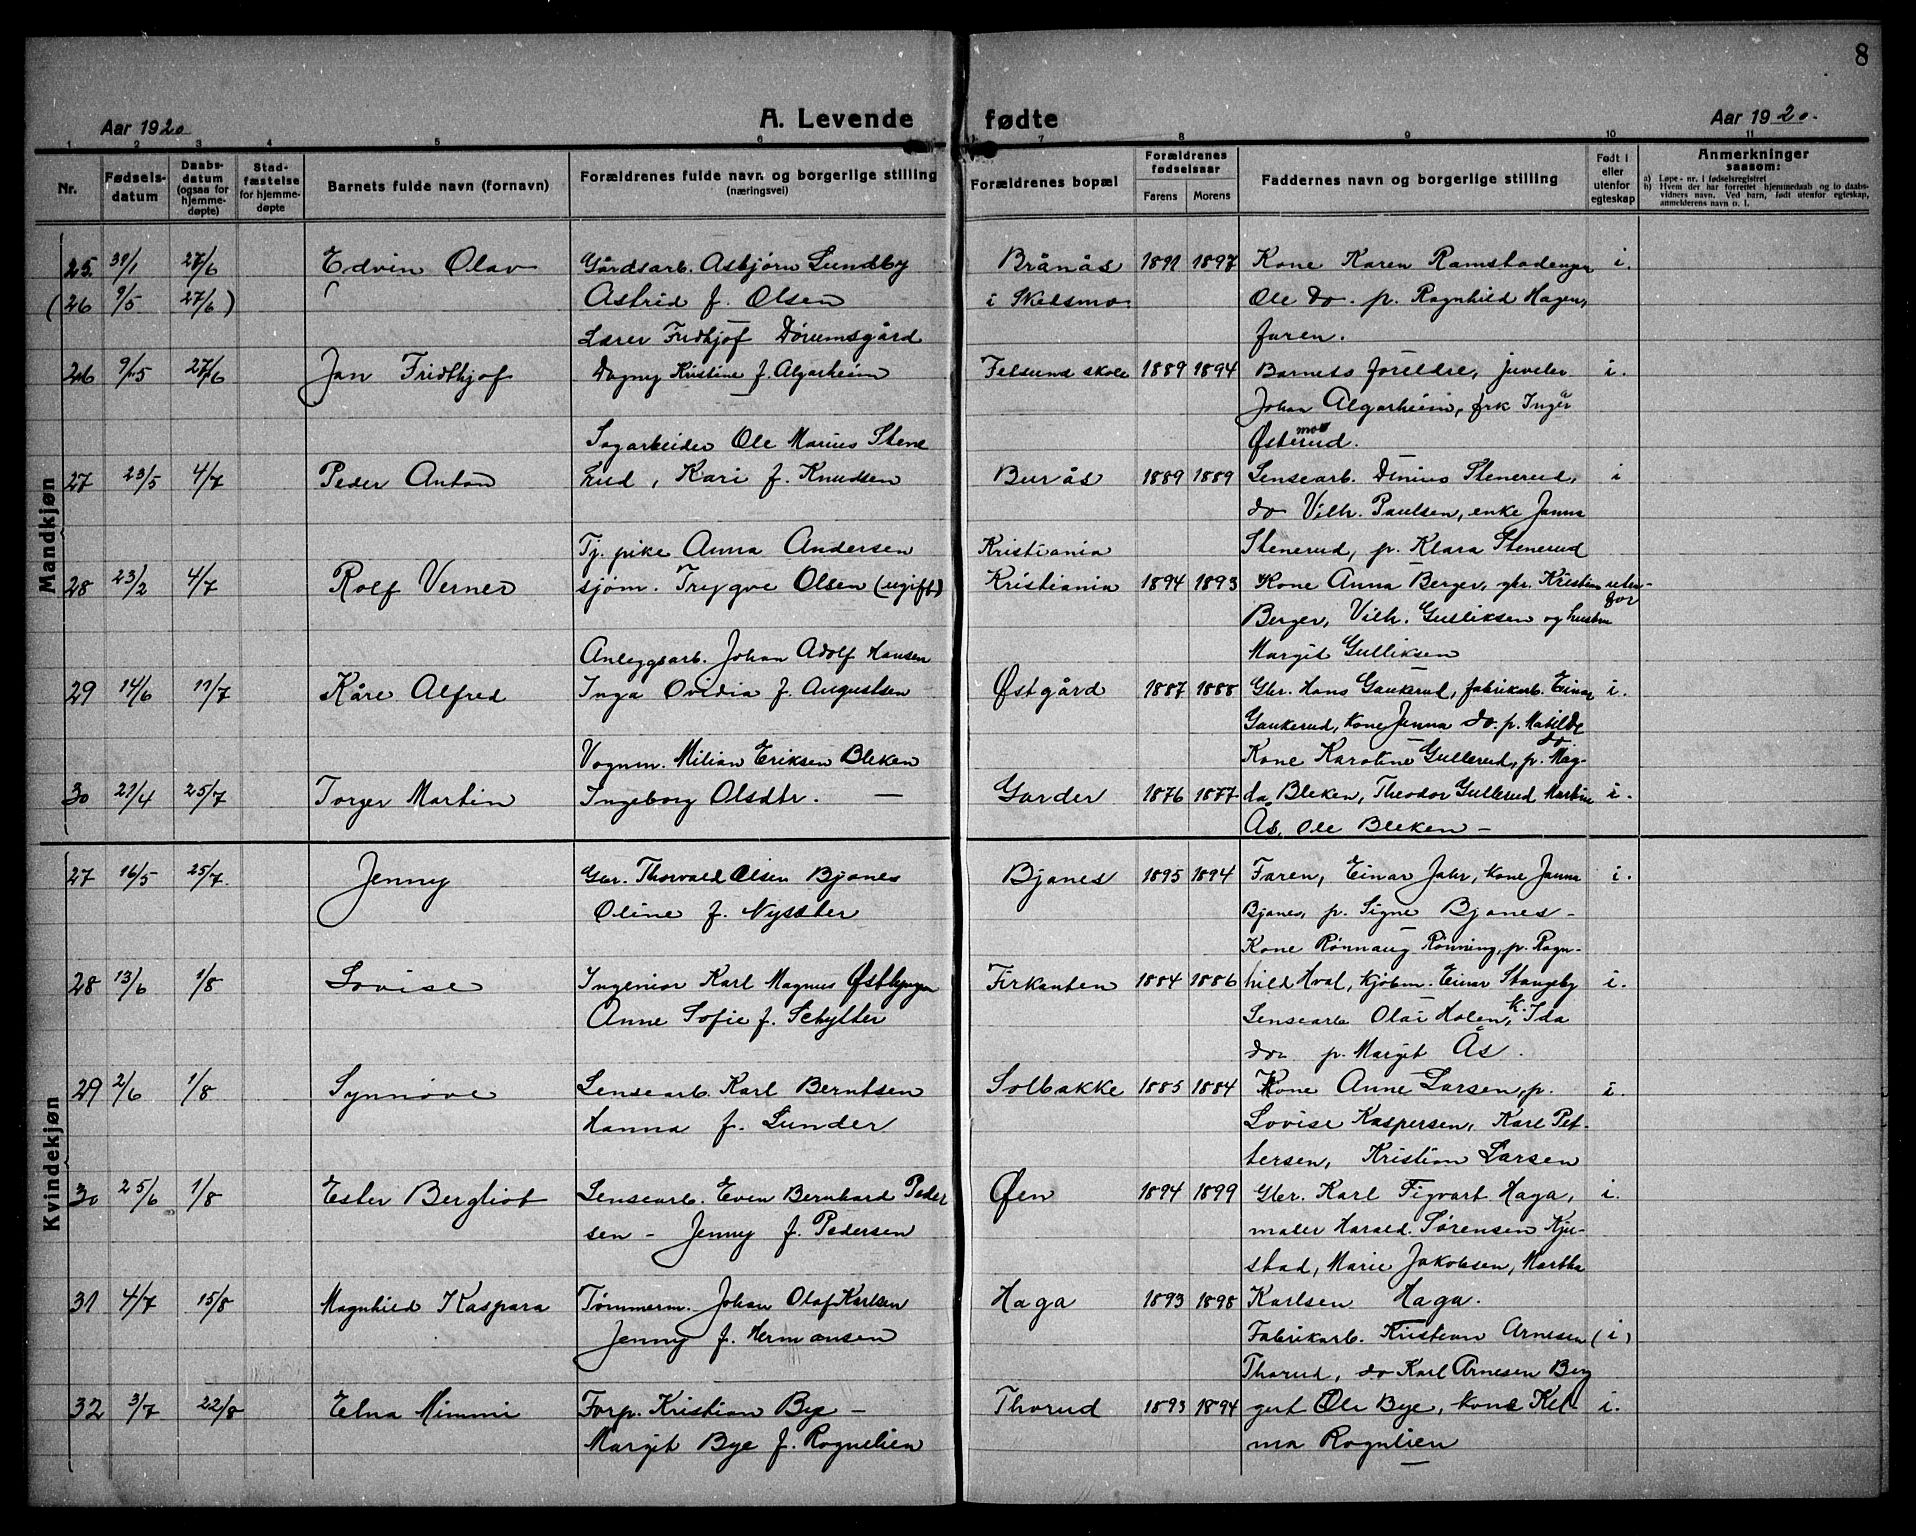 8
A. Levende fødte
Aar 1920
Aar 1920.
1 2 3 4 5 6 7 8 9 10 11
Nr.
Fødsels-
datum
Daabs-
datum
(ogsaa for
hjemme-
døpte)
Stad-
fæstelse
for hjemme-
døpte
Barnets fulde navn (fornavn)
Forældrenes fulde navn og borgerlige stilling
(næringsvei)
Forældrenes bopæl
Forældrenes
fødselsaar
Farens Morens
Faddernes navn og borgerlige stilling
Født i
eller
utenfor
egteskap
Anmerkninger
saasom:
a) Løpe-nr. i fødselsregistret
b) Hvem der har forrettet hjemmedaab og to daabs-
vidners navn. Ved barn, født utenfor egteskap,
anmelderens navn o. l.
Mandkjøn
25. 31/1 27/6 Edvin Olav Gårdsarb. Asbjørn Lundby Brånås 1891 1897 Kone Karen Ramstadengen i.
(26 9/5 27/6) Astrid f. Olsen i Skedsmo Ole do. p. Ragnhild Hagen,
Lærer Fridthjof Dørumsgård faren.
26 9/5 27/6 Jan Fridthjof Dagny Kristine f. Algarheim Felsund skole 1889 1894 Barnets foreldre, juveler i.
Johan Algarheim, frk Inger
Østermoe
Sagarbeider Ole Marius Stene
27 23/5 4/7 Peder Anton rud, Kari f. Knudsen Burås 1889 1889 Lensearb. Dinius Stenerud, i
do Vilh. Paulsen, enke Janna
Tj. pike Anna Andersen Kristiania Stenerud, p. Klara Stenerud
28 23/2 4/7 Rolf Verner sjøm. Trygve Olsen (ugift) Kristiania 1894 1893 Kone Anna Berger, gbr. Kristian uten-
for
Berger, Vilh. Gulliksen og hustru
Anleggsarb. Johan Adolf Hansen Margit Gulliksen
29 14/6 11/7 Kåre Alfred Inga Ovidia f. Augustsen Østgård 1887 1888 Gbr. Hans Gaukerud, fabrikarb. Einar i.
Gaukerud, kone Jenna do. p. Matilde
do
Vognm. Milian Eriksen Bleken Kone Karoline Gullerud, p. Mag-
30 21/4 25/7 Torger Martin Ingeborg Olsdtr. — Garder 1876 1877 da Bleken, Theodor Gullerud Martin i.
Ås, Ole Bleken —
Kvindekjøn
27 16/5 25/7. Jenny Gbr. Thorvald Olsen Bjanes Bjanes 1895 1894 Faren, Einar Jahr, kone Janna i.
Oline f. Nysæter Bjanes, p. Signe Bjanes —
Kone Rønnaug Rønning, p. Ragn-
28 13/6 1/8 Lovise Ingeniør Karl Magnus Østbyngen Firkanten 1884 1886 hild Hval, kjøbm. Einar Stangeby i.
Anne Sofie f. Schytter Lensearb Olai Holen, k. Ida
do p. Margit Ås.
29 2/6 1/8 Synnøve Lensearb. Karl Berntsen Solbakke 1885 1884 Kone Anne Larsen, p. i.
Hanna f. Lunder Lovise Kaspersen, Karl Pet-
tersen, Kristian Larsen
30 25/6 1/8 Ester Bergliot Lensearb. Even Bernhard Peder Øen 1894 1899 Gbr. Karl Sigvart Haga, i.
sen — Jenny f. Pedersen maler Harald Sørensen Kju-
stad, Marie Jakobsen, Martha
31 4/7 15/8 Magnhild Kaspara Tømmerm. Johan Olaf Karlsen Haga 1893 1898 Karlsen Haga.
Jenny f. Hermansen Fabrikarb. Kristian Arnesen (i)
Thorud, do Karl Arnesen Bey
32 3/7 22/8 Elna Mimmi Forp. Kristian Bye — Thorud 1893 1894 gert Ole Bye, kone Hel- i.
Margit Bye f. Rognelien ma Rognlien